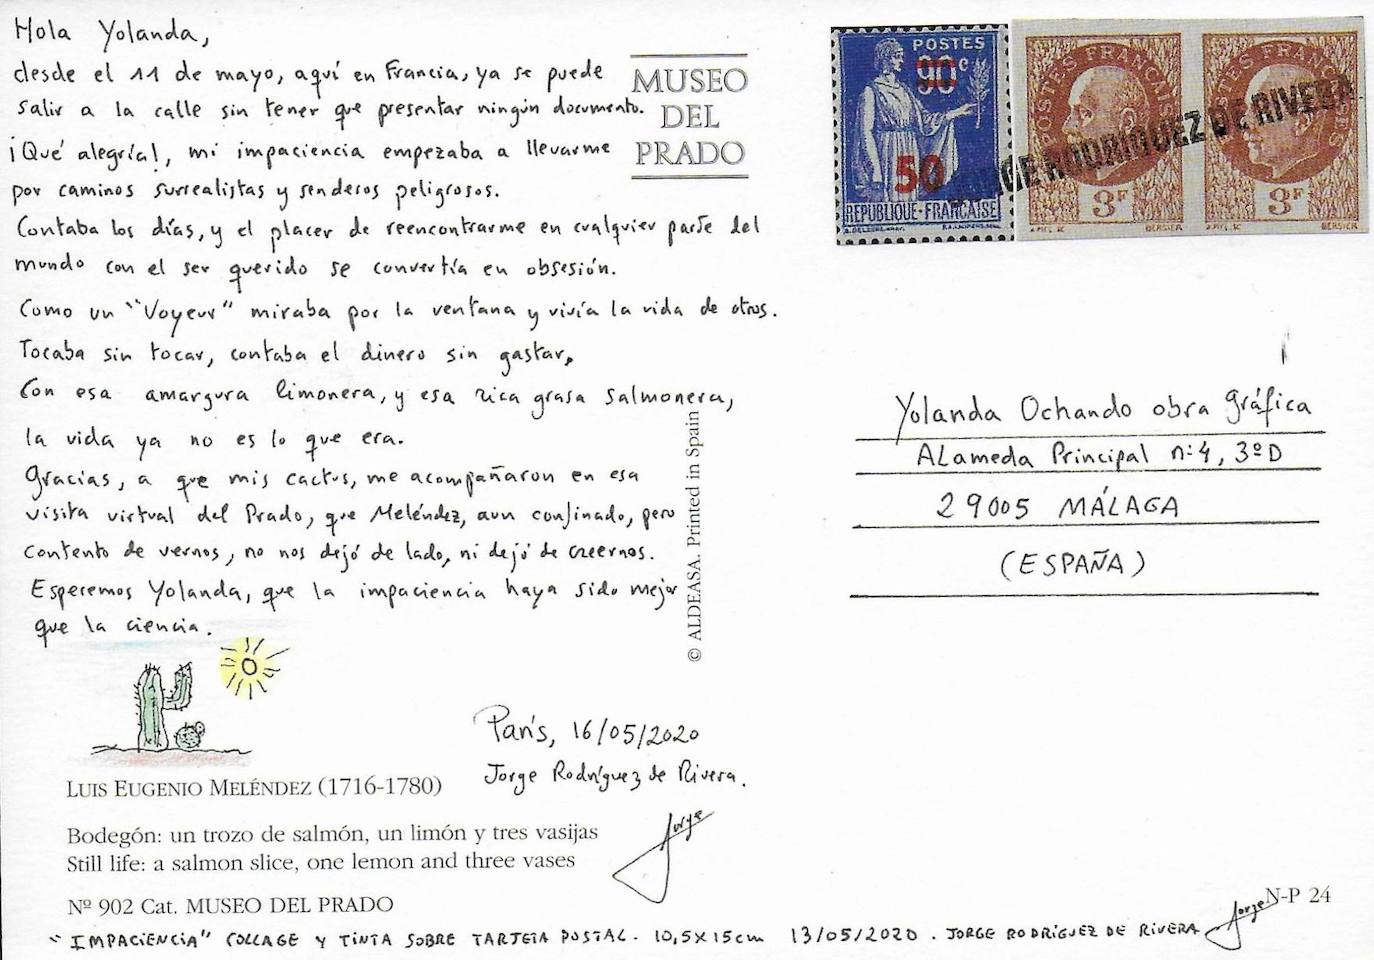 Hola Yolanda,
desde el 11 de mayo, aquí en Francia, ya se puede
salir a la calle sin tener que presentar ningún documento.
¡Qué alegría!, mi impaciencia empezaba a llevarme
por caminos surrealistas y senderos peligrosos.
Contaba los días, y el placer de reencontrarme en cualquier parte del
mundo con el ser querido se convertía en obsesión.
Como un "Voyeur" miraba por la ventana y vivía la vida de otros.
Tocaba sin tocar, contaba el dinero sin gastar,
Con esa amargura limonera, y esa rica grasa salmonera,
la vida ya no es lo que era.
Gracias, a que mis cactus, me acompañaron en esa
visita virtual del Prado, que Meléndez, aun confinado, pero
contento de vernos, no nos dejó de lado, ni dejó de creernos.
Esperemos Yolanda, que la impaciencia haya sido mejor
que la ciencia.
París, 16/05/2020
Jorge Rodríguez de Rivera.
Jorge
LUIS EUGENIO MELÉNDEZ (1716-1780)
Bodegón: un trozo de salmón, un limón y tres vasijas
Still life: a salmon slice, one lemon and three vases
Nº 902 Cat. MUSEO DEL PRADO
"IMPACIENCIA" COLLAGE Y TINTA SOBRE TARJETA POSTAL. 10,5X15cm 13/05/2020. JORGE RODRÍGUEZ DE RIVERA
Jorge
MUSEO
DEL
PRADO
© ALDEASA. Printed in Spain
POSTES
90c
50
REPUBLIQUE-FRANÇAISE
POSTES FRANÇAISES
3F
BERSIER
POSTES FRANÇAISES
3F
BERSIER
JORGE RODRIGUEZ DE RIVERA
Yolanda Ochando obra gráfica
ALameda Principal nº4, 3ºD
29005 MÁLAGA
(ESPAÑA)
N-P 24